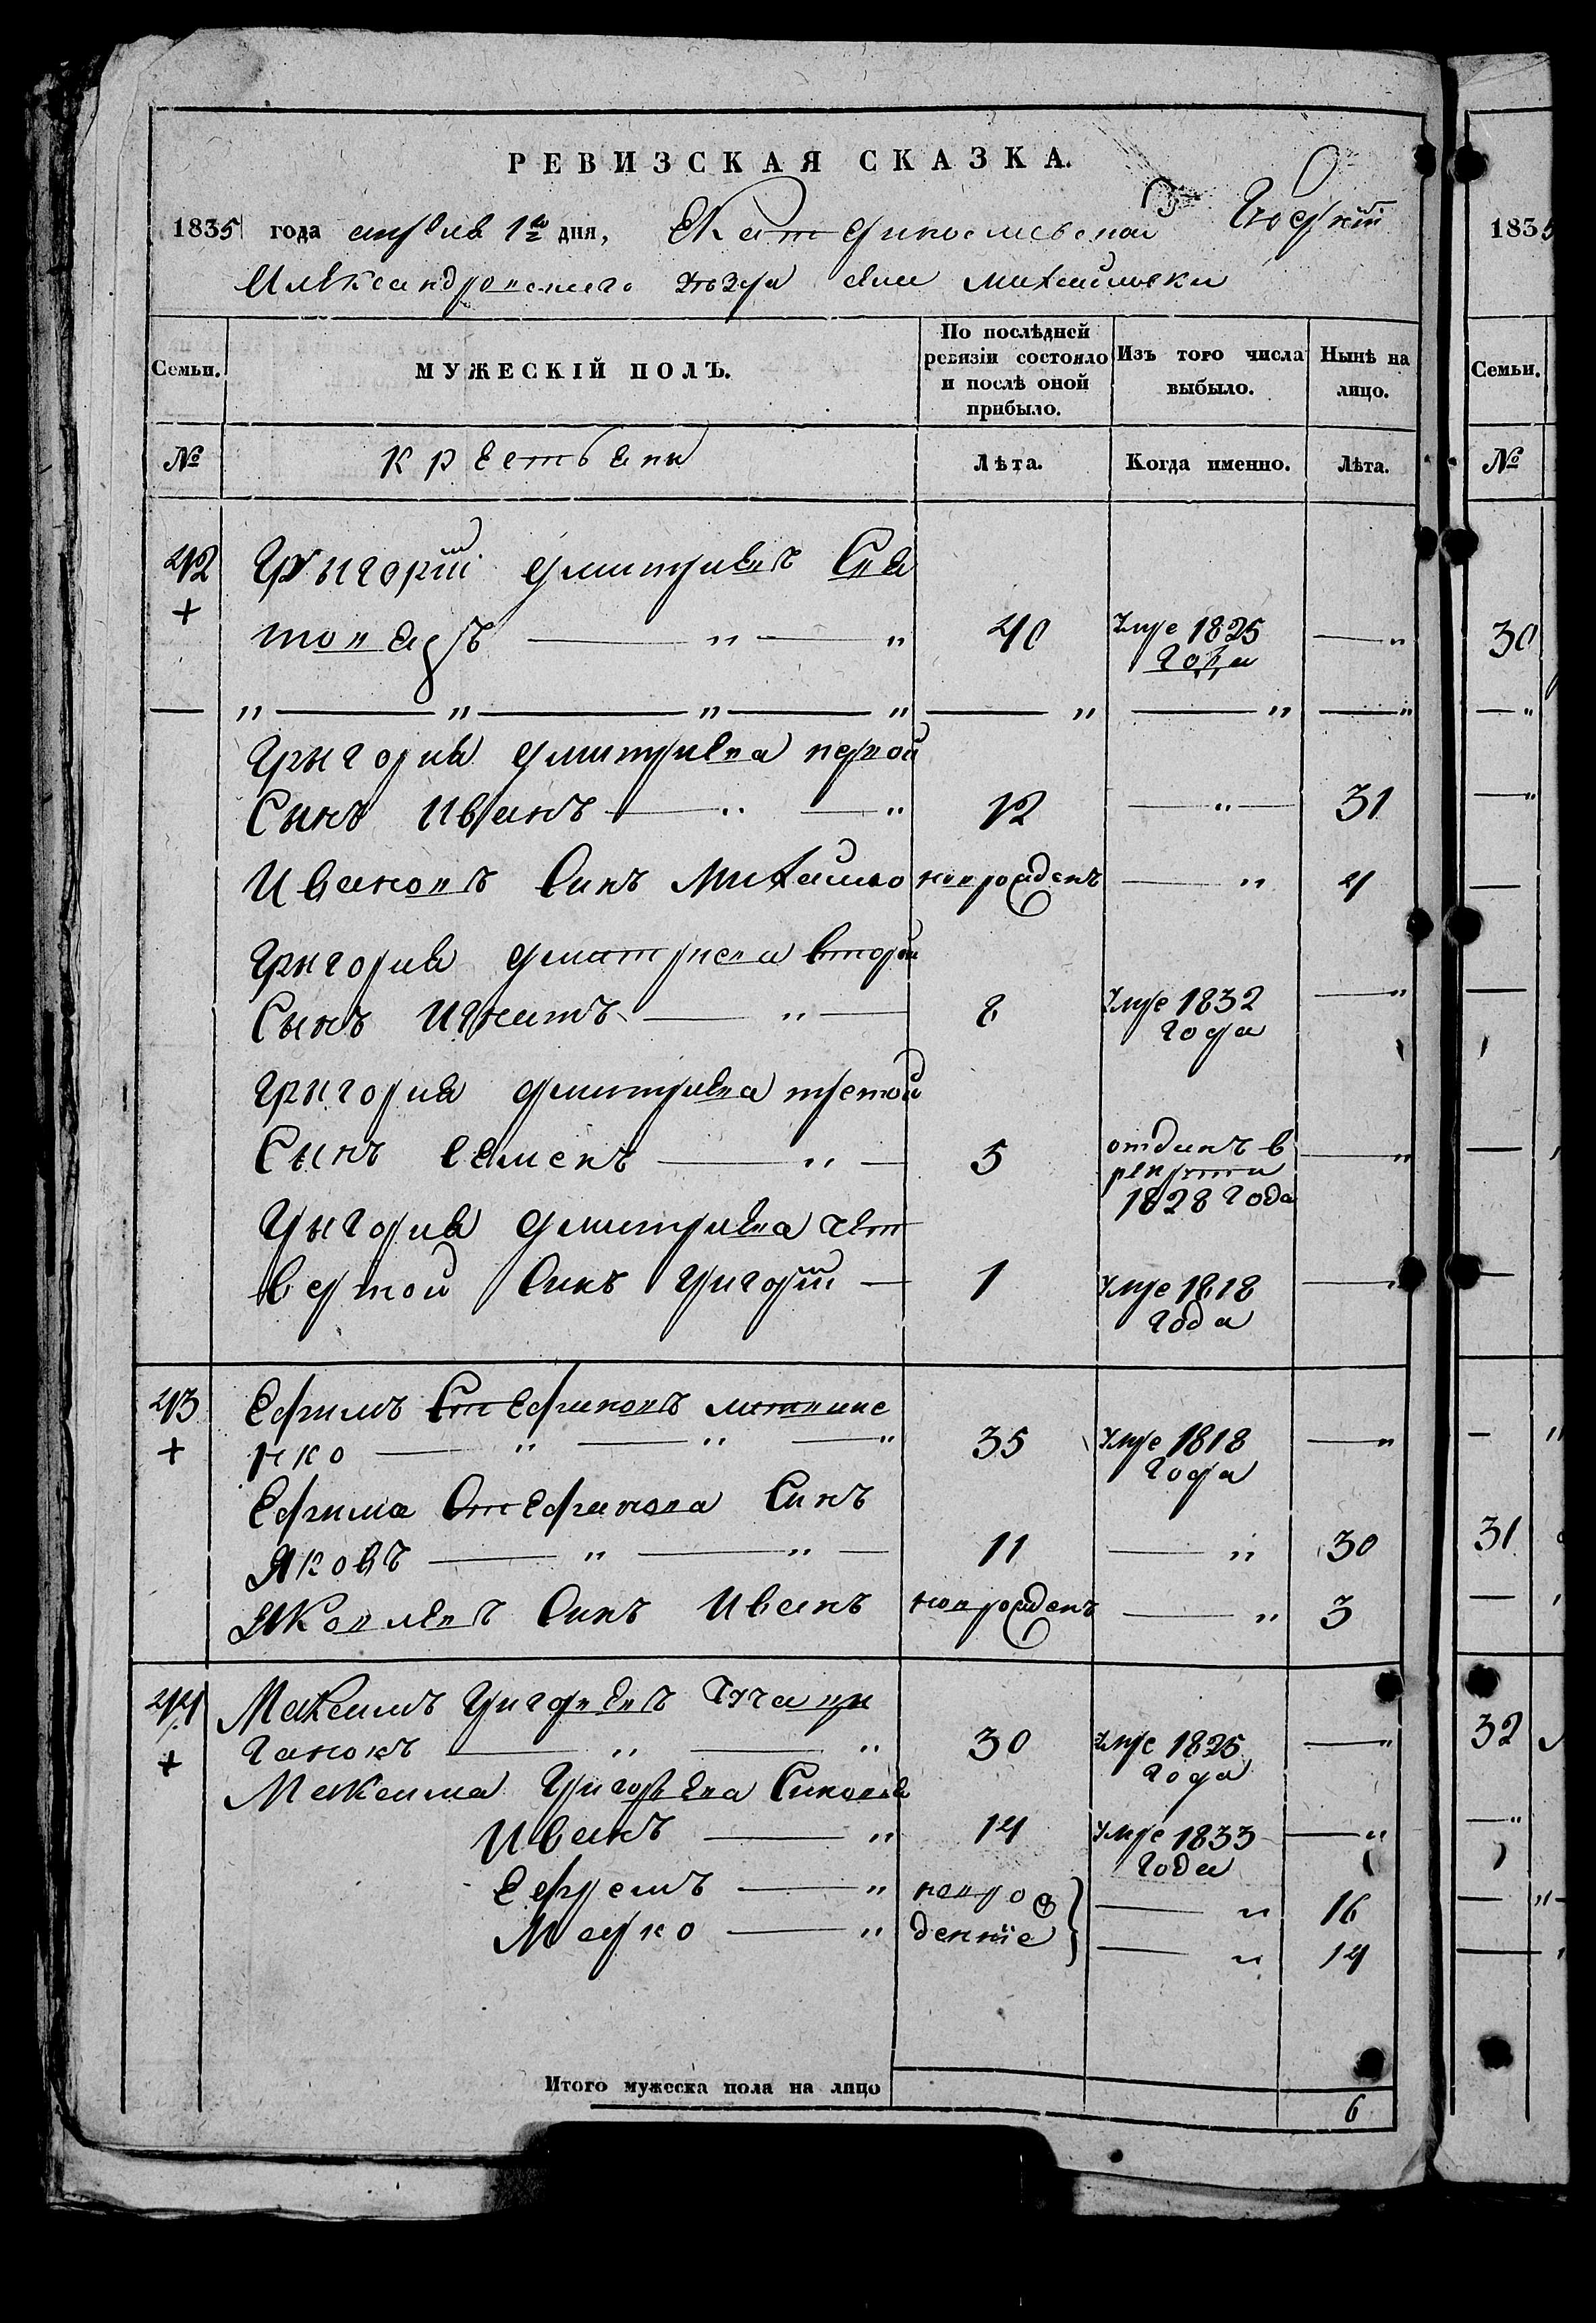 РЕВИЗСКАЯ СКАЗКА.
1835 года апреля 1го дня, Екатеринославской Губернии
Александровского уезда села Михайловки
Семьи.
МУЖЕСКІЙ ПОЛЪ.
По послѣдней ревизіи состояло и послѣ оной прибыло.
Изъ того числа выбыло.
Нынѣ на лицо.
№
крестьяне
Лѣта.
Когда именно.
Лѣта.
42 Григорій Дмитриевъ Сва
+ " " 40 умре 1825 — "
года
— " — " — " — " — " — " — "
Григория Дмитриева первой
Сынъ Иванъ — " — " 12 — " — 31
Ивановъ Синъ Михайло новрожденъ — " 4
Григория Дмитриева второй
Сынъ Игнатъ — " — 8 умре 1832 — "
года
Григория Дмитриева третой
Сынъ Семенъ — " — 5 отданъ в — "
рекруты
1828 года
Григория Дмитриева чет
вертой Синъ Григорій — 1 умре 1818 —
года
43 Ефимъ Стефановъ Литвине
+ нко — " — " — " 35 умре 1818 — "
года
Ефима Стефанова Синъ
Яковъ — " — " — 11 — " 30
Яковлевъ Синъ Иванъ новрожденъ — " 3
44 Максимъ Григорьевъ
+ — " — " 30 умре 1825 — "
года
Максима Григорьева Синовья
Иванъ — " 14 умре 1833 — "
года
Ефремъ — " новрож — " 16
Марко — " денніе — " 14
Итого мужеска пола на лицо
6
1835
Семьи.
№
30
31
32